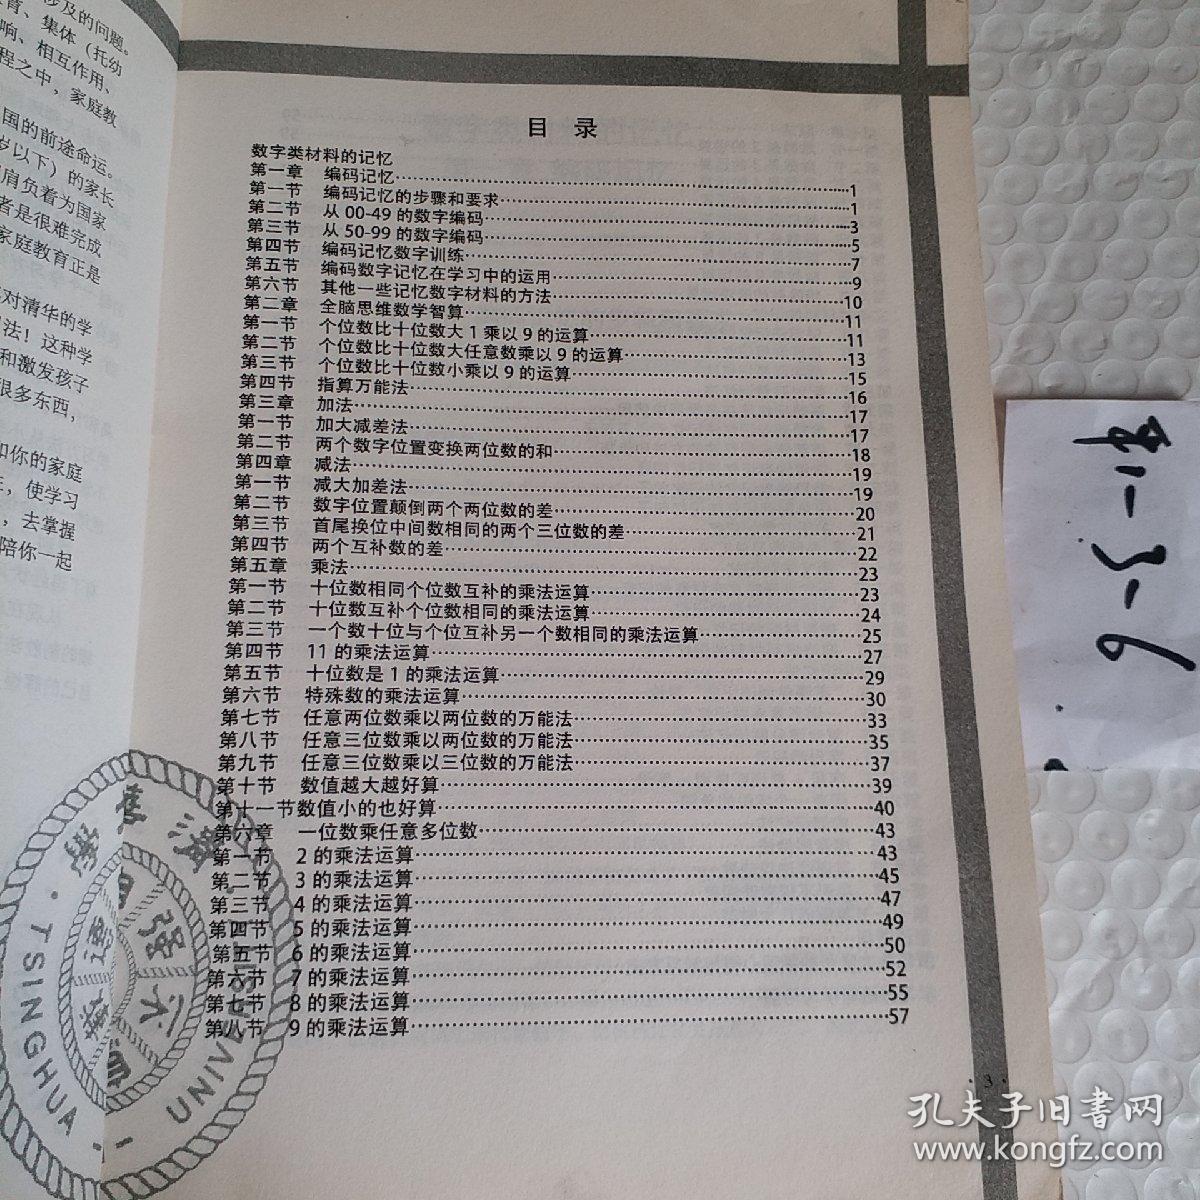 涉及的问题。
育、集体（托幼
响、相互作用、
程之中，家庭教
国的前途命运。
岁以下）的家长
肩负着为国家
者是很难完成
家庭教育正是
对清华的学
法！这种学
和激发孩子
很多东西，
和你的家庭
使学习
，去掌握
陪你一起
目 录
数字类材料的记忆
第一章 编码记忆……1
第一节 编码记忆的步骤和要求……1
第二节 从 00-49 的数字编码……3
第三节 从 50-99 的数字编码……5
第四节 编码记忆数字训练……7
第五节 编码数字记忆在学习中的运用……9
第六节 其他一些记忆数字材料的方法……10
第二章 全脑思维数学智算……11
第一节 个位数比十位数大 1 乘以 9 的运算……11
第二节 个位数比十位数大任意数乘以 9 的运算……13
第三节 个位数比十位数小乘以 9 的运算……15
第四节 指算万能法……16
第三章 加法……17
第一节 加大减差法……17
第二节 两个数字位置变换两位数的和……18
第四章 减法……19
第一节 减大加差法……19
第二节 数字位置颠倒两个两位数的差……20
第三节 首尾换位中间数相同的两个三位数的差……21
第四节 两个互补数的差……22
第五章 乘法……23
第一节 十位数相同个位数互补的乘法运算……23
第二节 十位数互补个位数相同的乘法运算……24
第三节 一个数十位与个位互补另一个数相同的乘法运算……25
第四节 11 的乘法运算……27
第五节 十位数是 1 的乘法运算……29
第六节 特殊数的乘法运算……30
第七节 任意两位数乘以两位数的万能法……33
第八节 任意三位数乘以两位数的万能法……35
第九节 任意三位数乘以三位数的万能法……37
第十节 数值越大越好算……39
第十一节数值小的也好算……40
第六章 一位数乘任意多位数……43
第一节 2 的乘法运算……43
第二节 3 的乘法运算……45
第三节 4 的乘法运算……47
第四节 5 的乘法运算……49
第五节 6 的乘法运算……50
第六节 7 的乘法运算……52
第七节 8 的乘法运算……55
第八节 9 的乘法运算……57
· TSINGHUA UNIVERSITY ·
· 3 ·
孔夫子旧书网
www.kongfz.com